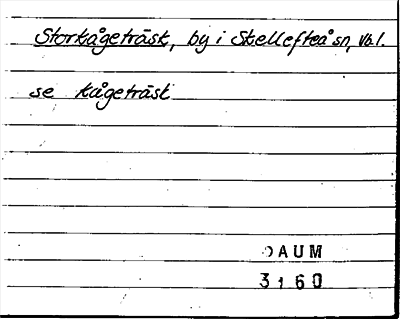 Storkågeträsk, by i Skellefteå sn, Vbl.
se Kågeträsk
DAUM
3160